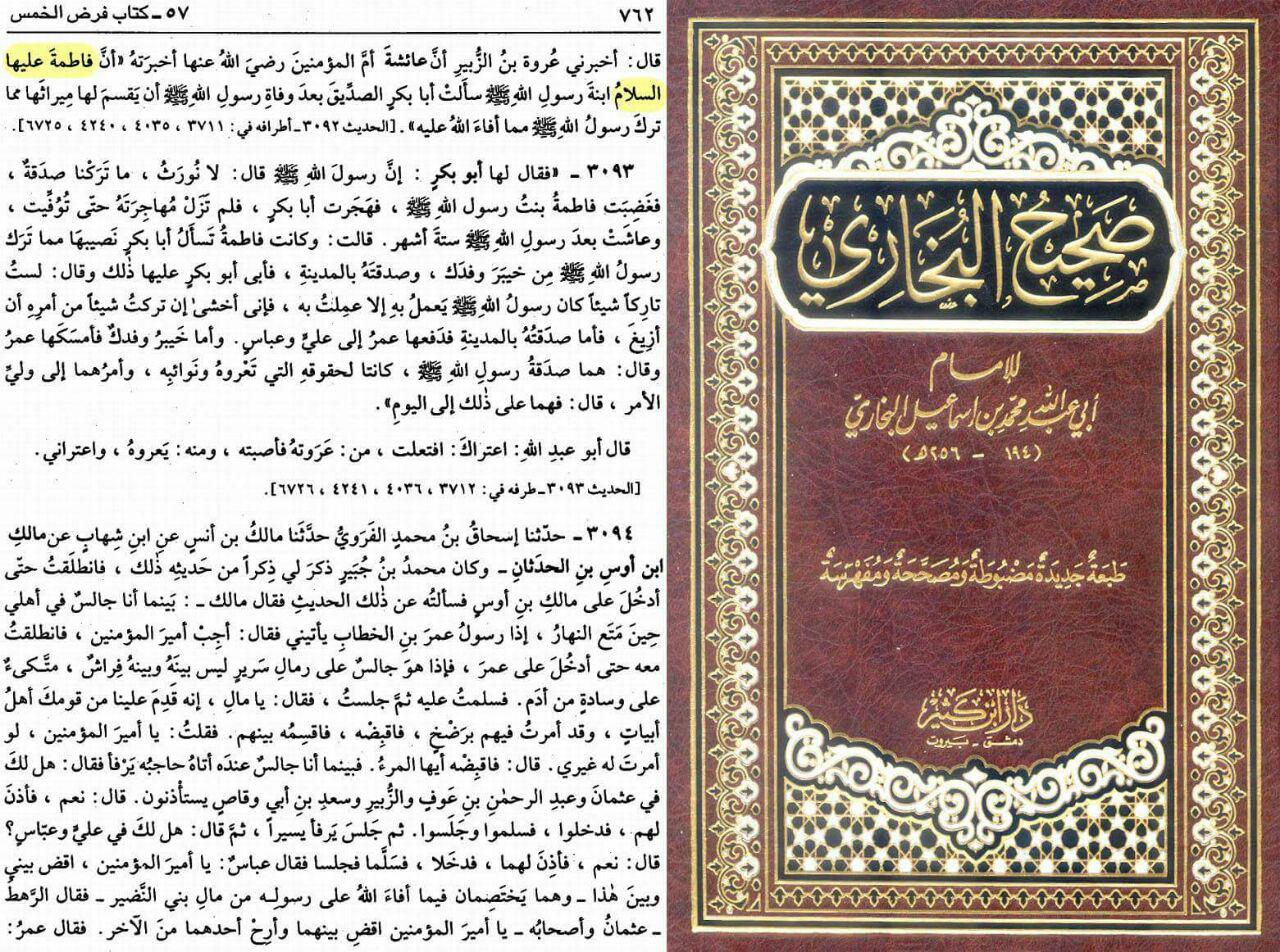 ٧٦٢
٥٧ ـ كتاب فرض الخمس
قال: أخبرني عُروة بنُ الزُّبيرِ أنَّ عائشةَ أمَّ المؤمنينَ رضيَ اللهُ عنها أخبرَتهُ «أنَّ فاطمةَ عليها
السلامُ ابنةَ رسولِ اللهِ ﷺ سألَتْ أبا بكرٍ الصدِّيقَ بعدَ وفاةِ رسولِ اللهِ ﷺ أن يَقسمَ لها مِيراثَها مما
تركَ رسولُ اللهِ ﷺ مما أفاءَ اللهُ عليه». [الحديث ٣٠٩٢ ـ أطرافه في: ٣٧١١ ، ٤٠٣٥ ، ٤٢٤٠ ، ٦٧٢٥].
٣٠٩٣ ـ «فقال لها أبو بكرٍ : إنَّ رسولَ اللهِ ﷺ قال: لا نُورَثُ ، ما تَرَكْنا صدَقةٌ ،
فغَضِبَت فاطمةُ بنتُ رسولِ اللهِ ﷺ ، فهَجَرت أبا بكرٍ ، فلم تزَلْ مُهاجِرَتَهُ حتّى تُوُفِّيت ،
وعاشَتْ بعدَ رسولِ اللهِ ﷺ ستةَ أشهرٍ. قالت: وكانت فاطمةُ تَسأَلُ أبا بكرٍ نَصيبهَا مما تَرَك
رسولُ اللهِ ﷺ مِن خيبرَ وفدَك ، وصدقتَهُ بالمدينةِ ، فأبى أبو بكرٍ عليها ذٰلك وقال: لستُ
تارِكاً شيئاً كان رسولُ اللهِ ﷺ يَعملُ بهِ إلا عمِلتُ به ، فإنى أخشىٰ إن تركتُ شيئاً من أمرِهِ أن
أزِيغَ ، فأما صدَقتُهُ بالمدينةِ فدَفعها عمرُ إلى عليٍّ وعباسٍ. وأما خَيبرُ وفدكٌ فأمسَكَها عمرُ
وقال: هما صدَقةُ رسولِ اللهِ ﷺ ، كانتا لحقوقهِ التي تَعْروهُ ونَوائبِه ، وأمرُهُما إلى وليِّ
الأمر ، قال: فهما على ذٰلك إلى اليومِ».
قال أبو عبدِ اللهِ: اعتراكَ: افتعلت ، من: عَرَوتهُ فأصبته ، ومنه: يَعروهُ ، واعتراني.
[الحديث ٣٠٩٣ ـ طرفه في: ٣٧١٢ ، ٤٠٣٦ ، ٤٢٤١ ، ٦٧٢٦].
٣٠٩٤ ـ حدّثنا إسحاقُ بنُ محمدٍ الفَرَويُّ حدَّثَنا مالكُ بن أنسٍ عن ابنِ شِهابٍ عن مالكِ
ابن أوسِ بنِ الحدَثانِ ـ وكان محمدُ بنُ جُبَيرٍ ذكرَ لي ذِكراً من حَديثهِ ذٰلك ، فانطلَقتُ حتّى
أدخُلَ على مالكِ بنِ أوسٍ فسألتُه عن ذٰلك الحديثِ فقال مالك ـ : بَينما أنا جالسٌ في أهلي
حِينَ مَتَع النهارُ ، إذا رسولُ عمرَ بنِ الخطابِ يأتيني فقال: أجِبْ أميرَ المؤمنين ، فانطلقتُ
معه حتى أدخُلَ على عمرَ ، فإذا هوَ جالسٌ على رمالِ سَريرٍ ليس بينَهُ وبينهُ فِراشٌ ، متَّكىءٌ
على وسادةٍ من أدَم. فسلمتُ عليه ثمَّ جلستُ ، فقال: يا مالِ ، إنه قَدِمَ علينا من قومكَ أهلُ
أبياتٍ ، وقد أمرتُ فيهم برَضْخٍ ، فاقبِضْه ، فاقسِمُه بينهم. فقلتُ: يا أميرَ المؤمنين ، لو
أمرتَ له غيري. قال: فاقبِضْه أيها المرءُ. فبينما أنا جالسٌ عندَه أتاهُ حاجبُه يَرْفأ فقال: هل لكَ
في عثمانَ وعبدِ الرحمٰنِ بنِ عَوفٍ والزُّبيرِ وسعدِ بنِ أبي وقاصٍ يستأْذنون. قال: نعم ، فأذنَ
لهم ، فدخلوا ، فسلموا وجَلَسوا. ثم جَلسَ يَرفأ يسيراً ، ثمَّ قال: هل لكَ في عليٍّ وعبّاسٍ؟
قال: نعم ، فأذِنَ لهما ، فدخَلا ، فسَلَّما فجلسا فقال عباسٌ: يا أميرَ المؤمنين ، اقض بيني
وبينَ هٰذا ـ وهما يَختَصِمان فيما أفاءَ اللهُ على رسولِـه من مالِ بني النَّضير ـ فقال الرَّهطُ
ـ عثمانُ وأصحابُه ـ يا أميرَ المؤمنين اقضِ بينهما وأرِحْ أحدَهما منَ الآخر. فقال عمرُ:
صَحِيحُ البُخَارِي
للإمام
أبي عبد الله محمد بن اسماعيل البخاري
(١٩٤ - ٢٥٦ هـ)
طبعَةٌ جَديدَةٌ مَضبُوطَةٌ وَمُصَحَّحَةٌ وَمُفَهْرَسَةٌ
دَارُ ابْن كَثِير
دمشق - بيروت